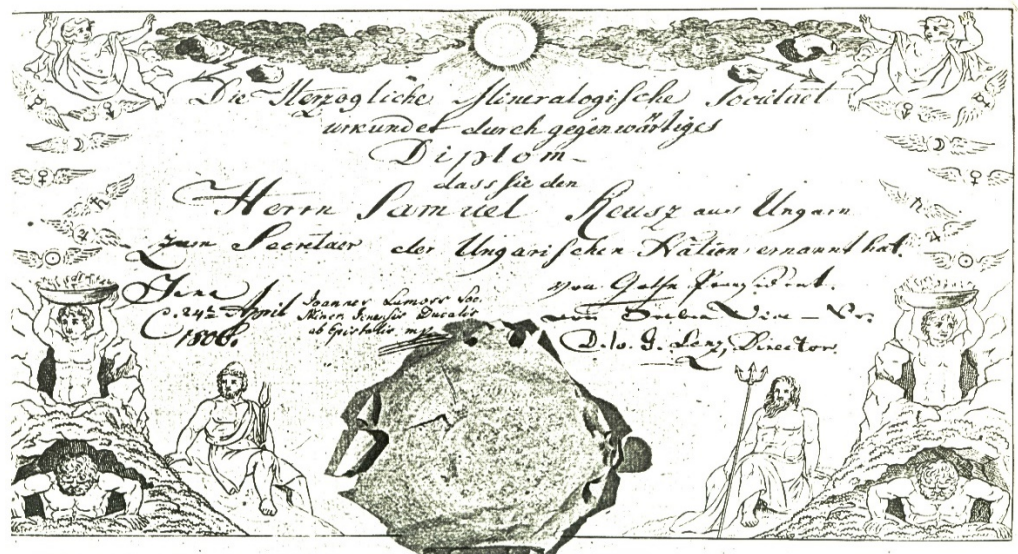 Die Herzogliche Mineralogische Societaet
urkundet durch gegenwärtiges
Diplom
dass sie den
Herrn Samuel Reusz aus Ungarn
zum Secretaer der Ungarischen Nation ernannt hat.
Jena
C. 24ten April
1806.
Joannes Soc.
Miner. Jenensis Ducalis
ab Epistolis mp
von
von Vice-Pr.
D. J. G. Lenz, Director.